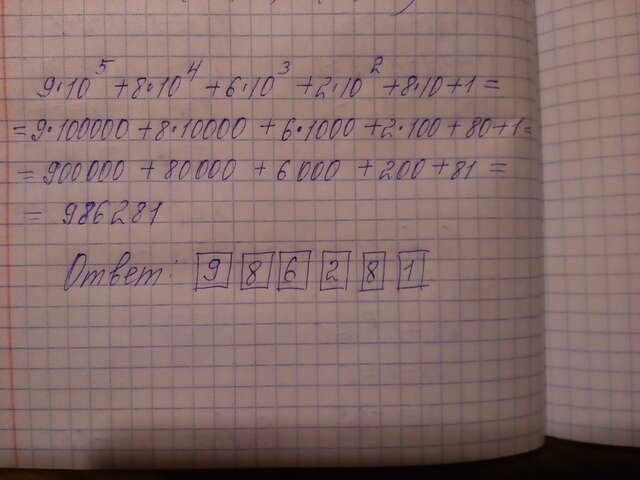 9·10⁵ + 8·10⁴ + 6·10³ + 2·10² + 8·10 + 1 =
= 9·100000 + 8·10000 + 6·1000 + 2·100 + 80 + 1 =
= 900000 + 80000 + 6000 + 200 + 81 =
= 986281
Ответ: 9 8 6 2 8 1